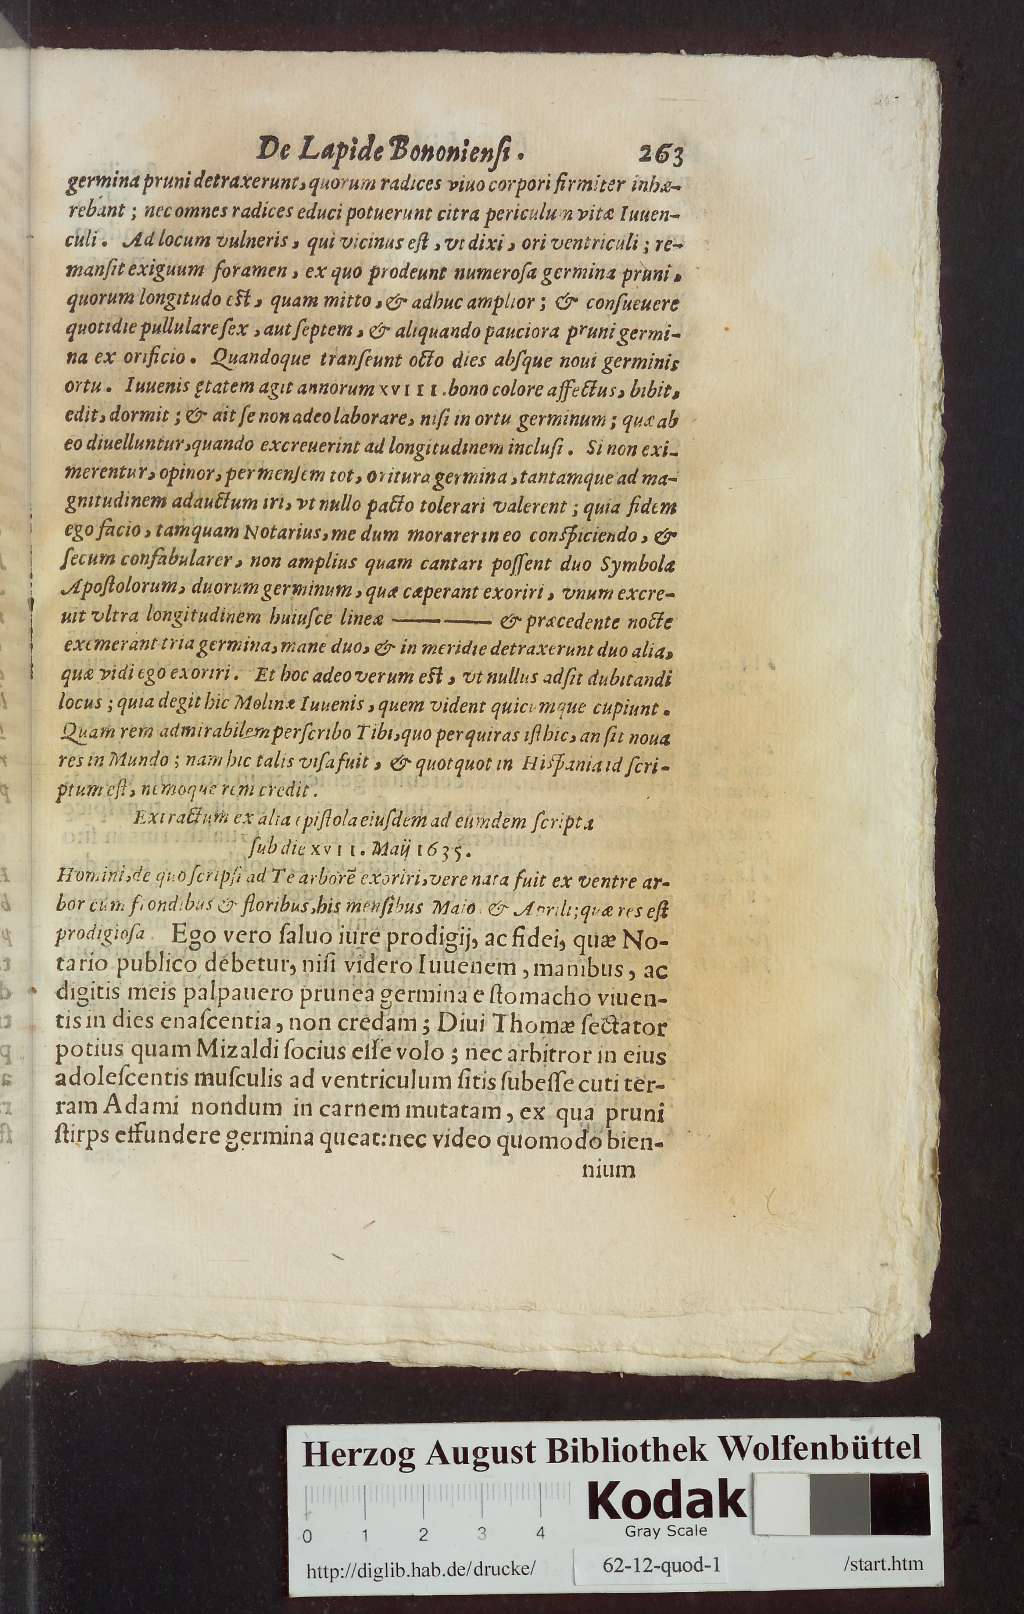 De Lapide Bononiensi. 263
germina pruni detraxerunt, quorum radices viuo corpori firmiter inhæ-
rebant; nec omnes radices educi potuerunt citra periculum vitæ Iuuen-
culi. Ad locum vulneris, qui vicinus est, vt dixi, ori ventriculi; re-
mansit exiguum foramen, ex quo prodeunt numerosa germina pruni,
quorum longitudo est, quam mitto, & adhuc amplior; & consueuere
quotidie pullulare sex, aut septem, & aliquando pauciora pruni germi-
na ex orificio. Quandoque transeunt octo dies absque noui germinis
ortu. Iuuenis ętatem agit annorum XVIII. bono colore affectus, bibit,
edit, dormit; & ait se non adeo laborare, nisi in ortu germinum; quæ ab
eo diuelluntur, quando excreuerint ad longitudinem inclusi. Si non exi-
merentur, opinor, per mensem tot, oritura germina, tantamque ad ma-
gnitudinem adauctum iri, vt nullo pacto tolerari valerent; quia fidem
ego facio, tamquam Notarius, me dum morarer in eo conspiciendo, &
secum confabularer, non amplius quam cantari possent duo Symbola
Apostolorum, duorum germinum, quæ cæperant exoriri, vnum excre-
uit vltra longitudinem huiusce lineæ ——— & præcedente nocte
exemerant tria germina, mane duo, & in meridie detraxerunt duo alia,
quæ vidi ego exoriri. Et hoc adeo verum est, vt nullus adsit dubitandi
locus; quia degit hic Molinæ Iuuenis, quem vident quicumque cupiunt.
Quam rem admirabilem perscribo Tibi, quo perquiras isthic, an sit noua
res in Mundo; nam hic talis visa fuit, & quotquot in Hispania id scri-
ptum est, nemoque rem credit.
Extractum ex alia epistola eiusdem ad eumdem scripta
sub die XVII. Maij 1635.
Homini, de quo scripsi ad Te arborē exoriri, vere nata fuit ex ventre ar-
bor cum frondibus & floribus, his mensibus Maio, & Aprili; quæ res est
prodigiosa. Ego vero saluo iure prodigij, ac fidei, quæ No-
tario publico debetur, nisi videro Iuuenem, manibus, ac
digitis meis palpauero prunea germina e stomacho viuen-
tis in dies enascentia, non credam; Diui Thomæ sectator
potius quam Mizaldi socius esse volo; nec arbitror in eius
adolescentis musculis ad ventriculum sitis subesse cuti ter-
ram Adami nondum in carnem mutatam, ex qua pruni
stirps effundere germina queat: nec video quomodo bien-
nium
Herzog August Bibliothek Wolfenbüttel
0 1 2 3 4
Kodak
Gray Scale
http://diglib.hab.de/drucke/ 62-12-quod-1 /start.htm